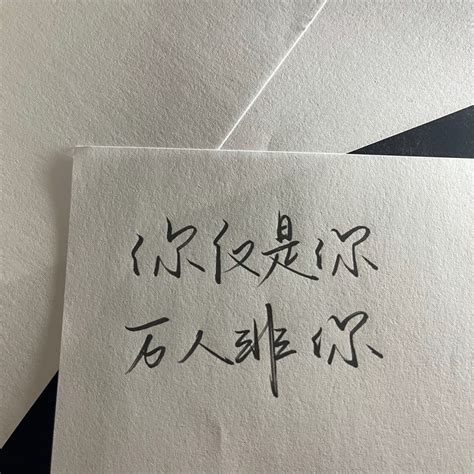 你仅是你
万人非你